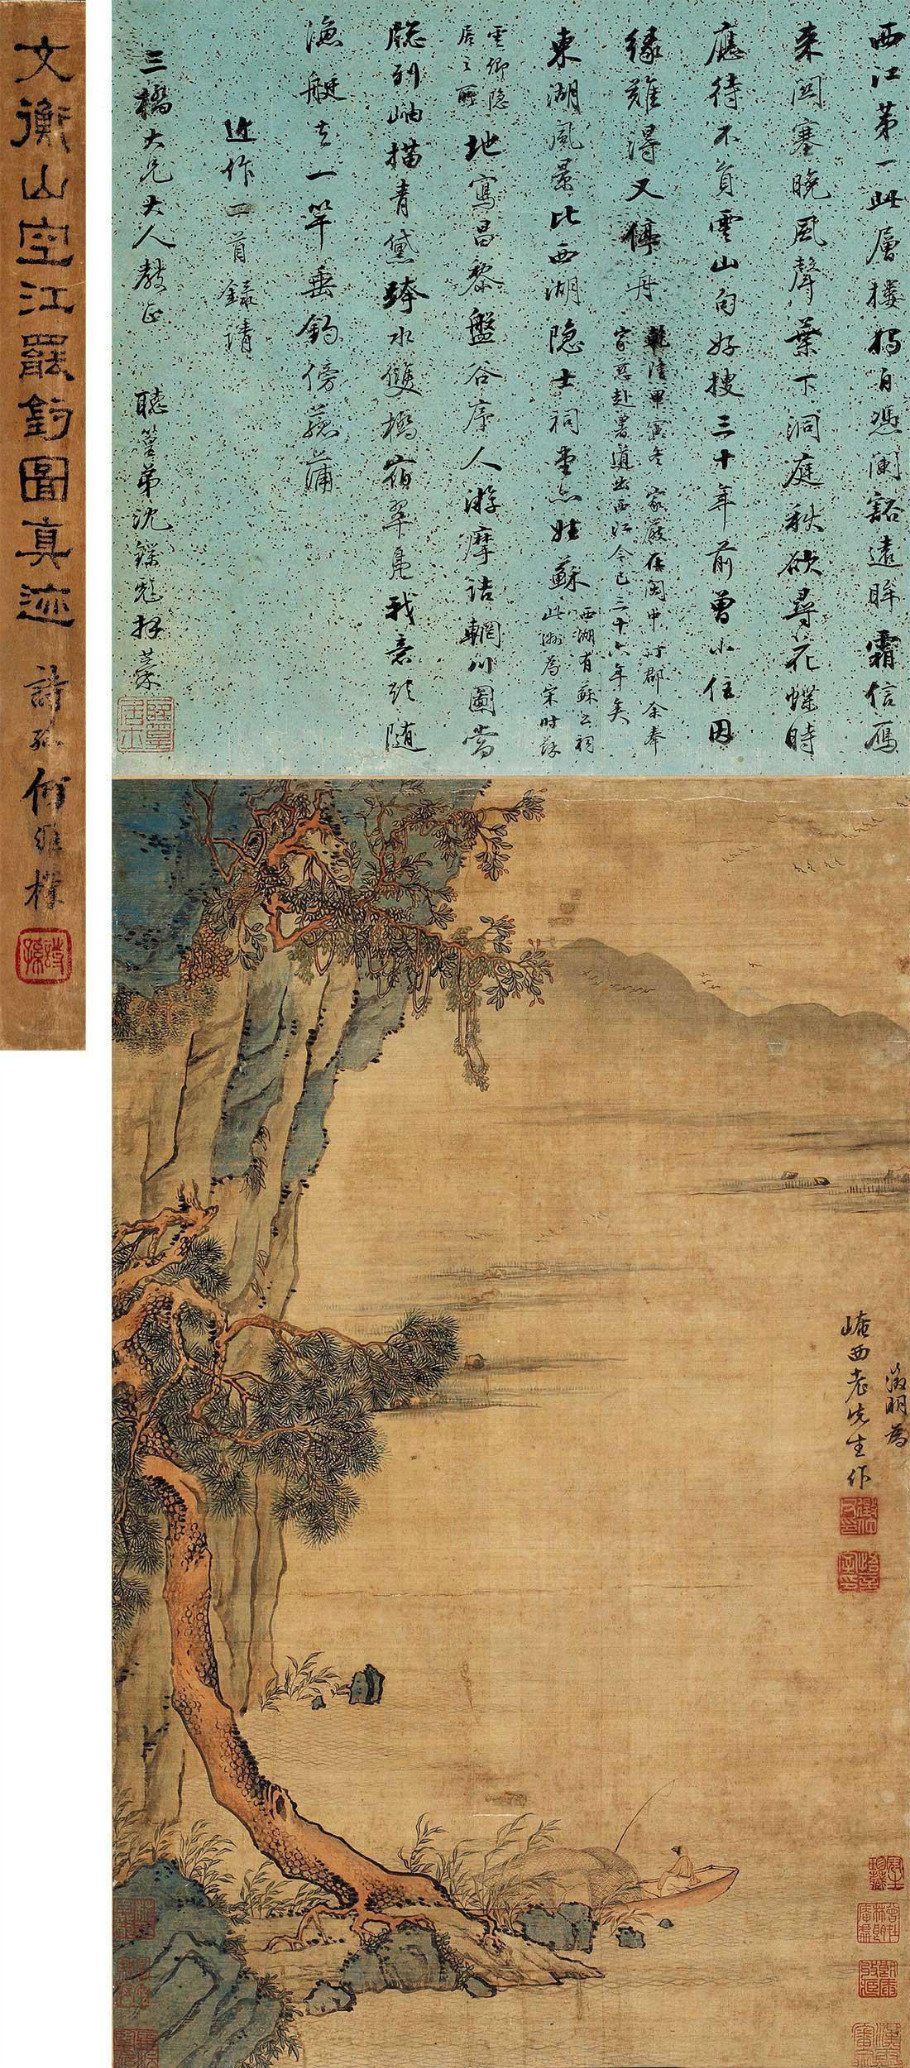 文衡山空江罷釣圖真迹
詩孫何維樸
詩孫
西江第一此層樓獨自憑闌豁遠眸霜信雁
來関塞晚風聲葉下洞庭秋欲尋花蝶時
應待不負雲山句好搜三十年前曾小住因
緣難得又停舟
家嚴在閩中汀郡余奉
家慈赴署道出西江今已三十六年矣
東湖風景比西湖隐士祠堂亦姓蘇
西湖有蘇公祠
此湖為宋時蘇
雲卿隐
居之所
地寫昌黎盤谷序人游摩詰輞川圖當
牕列岫描青黛跨水雙橋宿翠鳧我意欲隨
漁艇去一竿垂釣傍菰蒲
近作二首録請
三橋大兄大人教正
聽篁弟沈鎔彪拜藁
徵明為
崦西老先生作